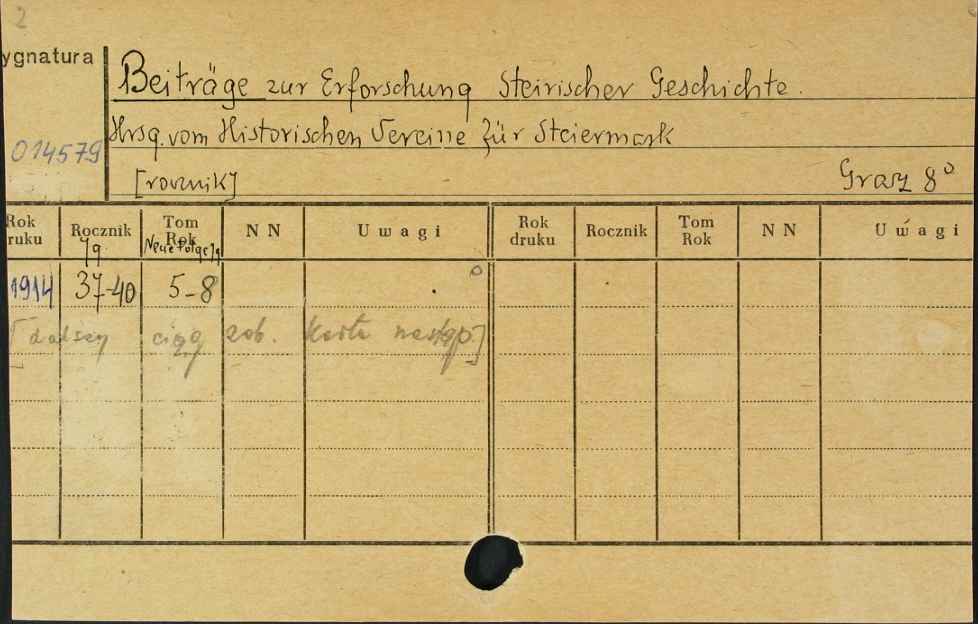 2
ygnatura
Beiträge zur Erforschung Steirischer Geschichte.
Hrsg. vom Historischen Vereine für Steiermark
014579
[rocznik] Graz 8°
Rok druku Rocznik Tom Rok NN Uwagi Rok druku Rocznik Tom Rok NN Uwagi
Jg. Neue Folge Jg
1914 37-40 5-8
[dalszy ciąg zob. karta następ.]